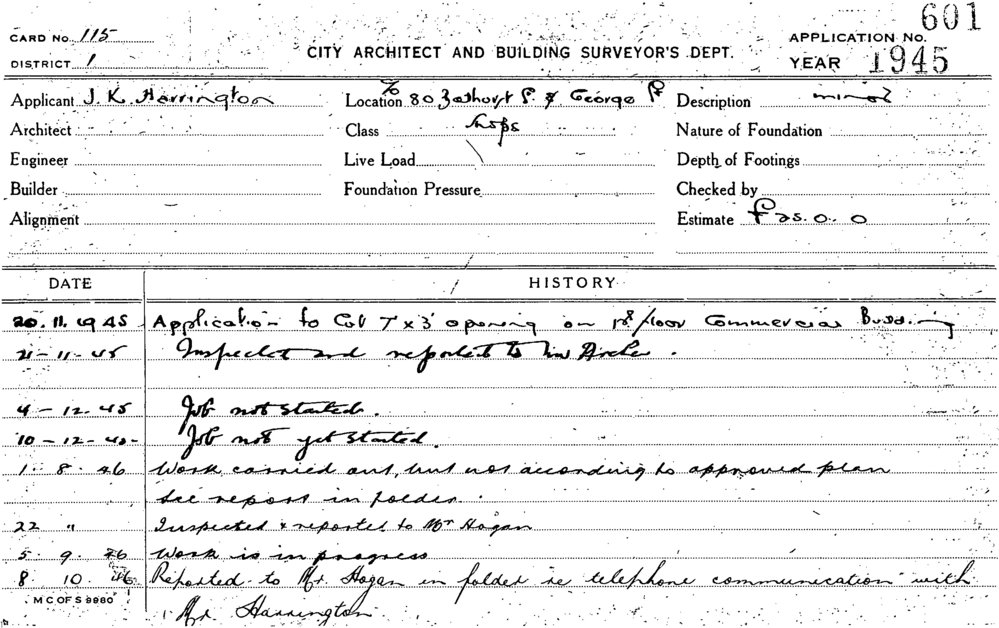 601
CARD No. 115
APPLICATION No.
DISTRICT 1
CITY ARCHITECT AND BUILDING SURVEYOR'S DEPT.
YEAR 1945
Applicant J. K. Harrington
Location 80 Bathurst St & George St
Description minor
Architect
Class Shops
Nature of Foundation
Engineer
Live Load
Depth of Footings
Builder
Foundation Pressure
Checked by
Alignment
Estimate £25.0.0
DATE HISTORY
20.11.1945 Application to Cut 7' x 3' opening on 1st floor Commercial Building
21-11-45 Inspected and reported to Mr Archer.
4-12-45 Job not started.
10-12-45 Job not yet started.
1 8 46 Work carried out, but not according to approved plan
See report in folder.
22 " Inspected & reported to Mr Hogan
5 9 46 Work is in progress
8 10 46 Reported to Mr. Hogan in folder re telephone communication with
M C OF S 9980
Mr Harrington.